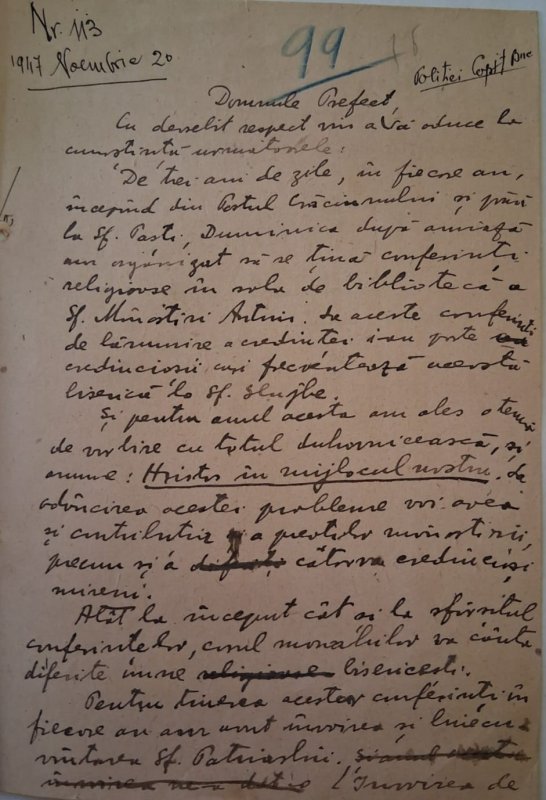 Nr. 113
1947 Noembrie 20
99
18
Poliției Capit
Domnule Prefect,
Cu deosebit respect vin a Vă aduce la
cunoștință următoarele:
De trei ani de zile, în fiecare an,
începînd din Postul Crăciunului și pînă
la Sf. Paști, Duminica după amiază
am organizat să se țină conferinți
religioase în sala de bibliotecă a
Sf. Mînăstiri Antim. La aceste conferinți
de lămurire a credinței iau parte
credincioșii cari frecventează această
biserică la Sf. Slujbe.
Și pentru anul acesta am ales o temă
de vorbire cu totul duhovnicească, și
anume: Hristos în mijlocul nostru. La
adîncirea acestei probleme voi avea
și contribuția preoților mînăstirii,
precum și a diferiți cîtorva credincioși
mireni.
Atît la început cît și la sfîrșitul
conferințelor, corul monahilor va cînta
diferite imne religioase bisericești.
Pentru ținerea acestor conferinți în
fiecare an am avut învoirea și binecu-
vîntarea Sf. Patriarhii. Și anul acesta
învoirea ne-a dat-o (Învoirea de